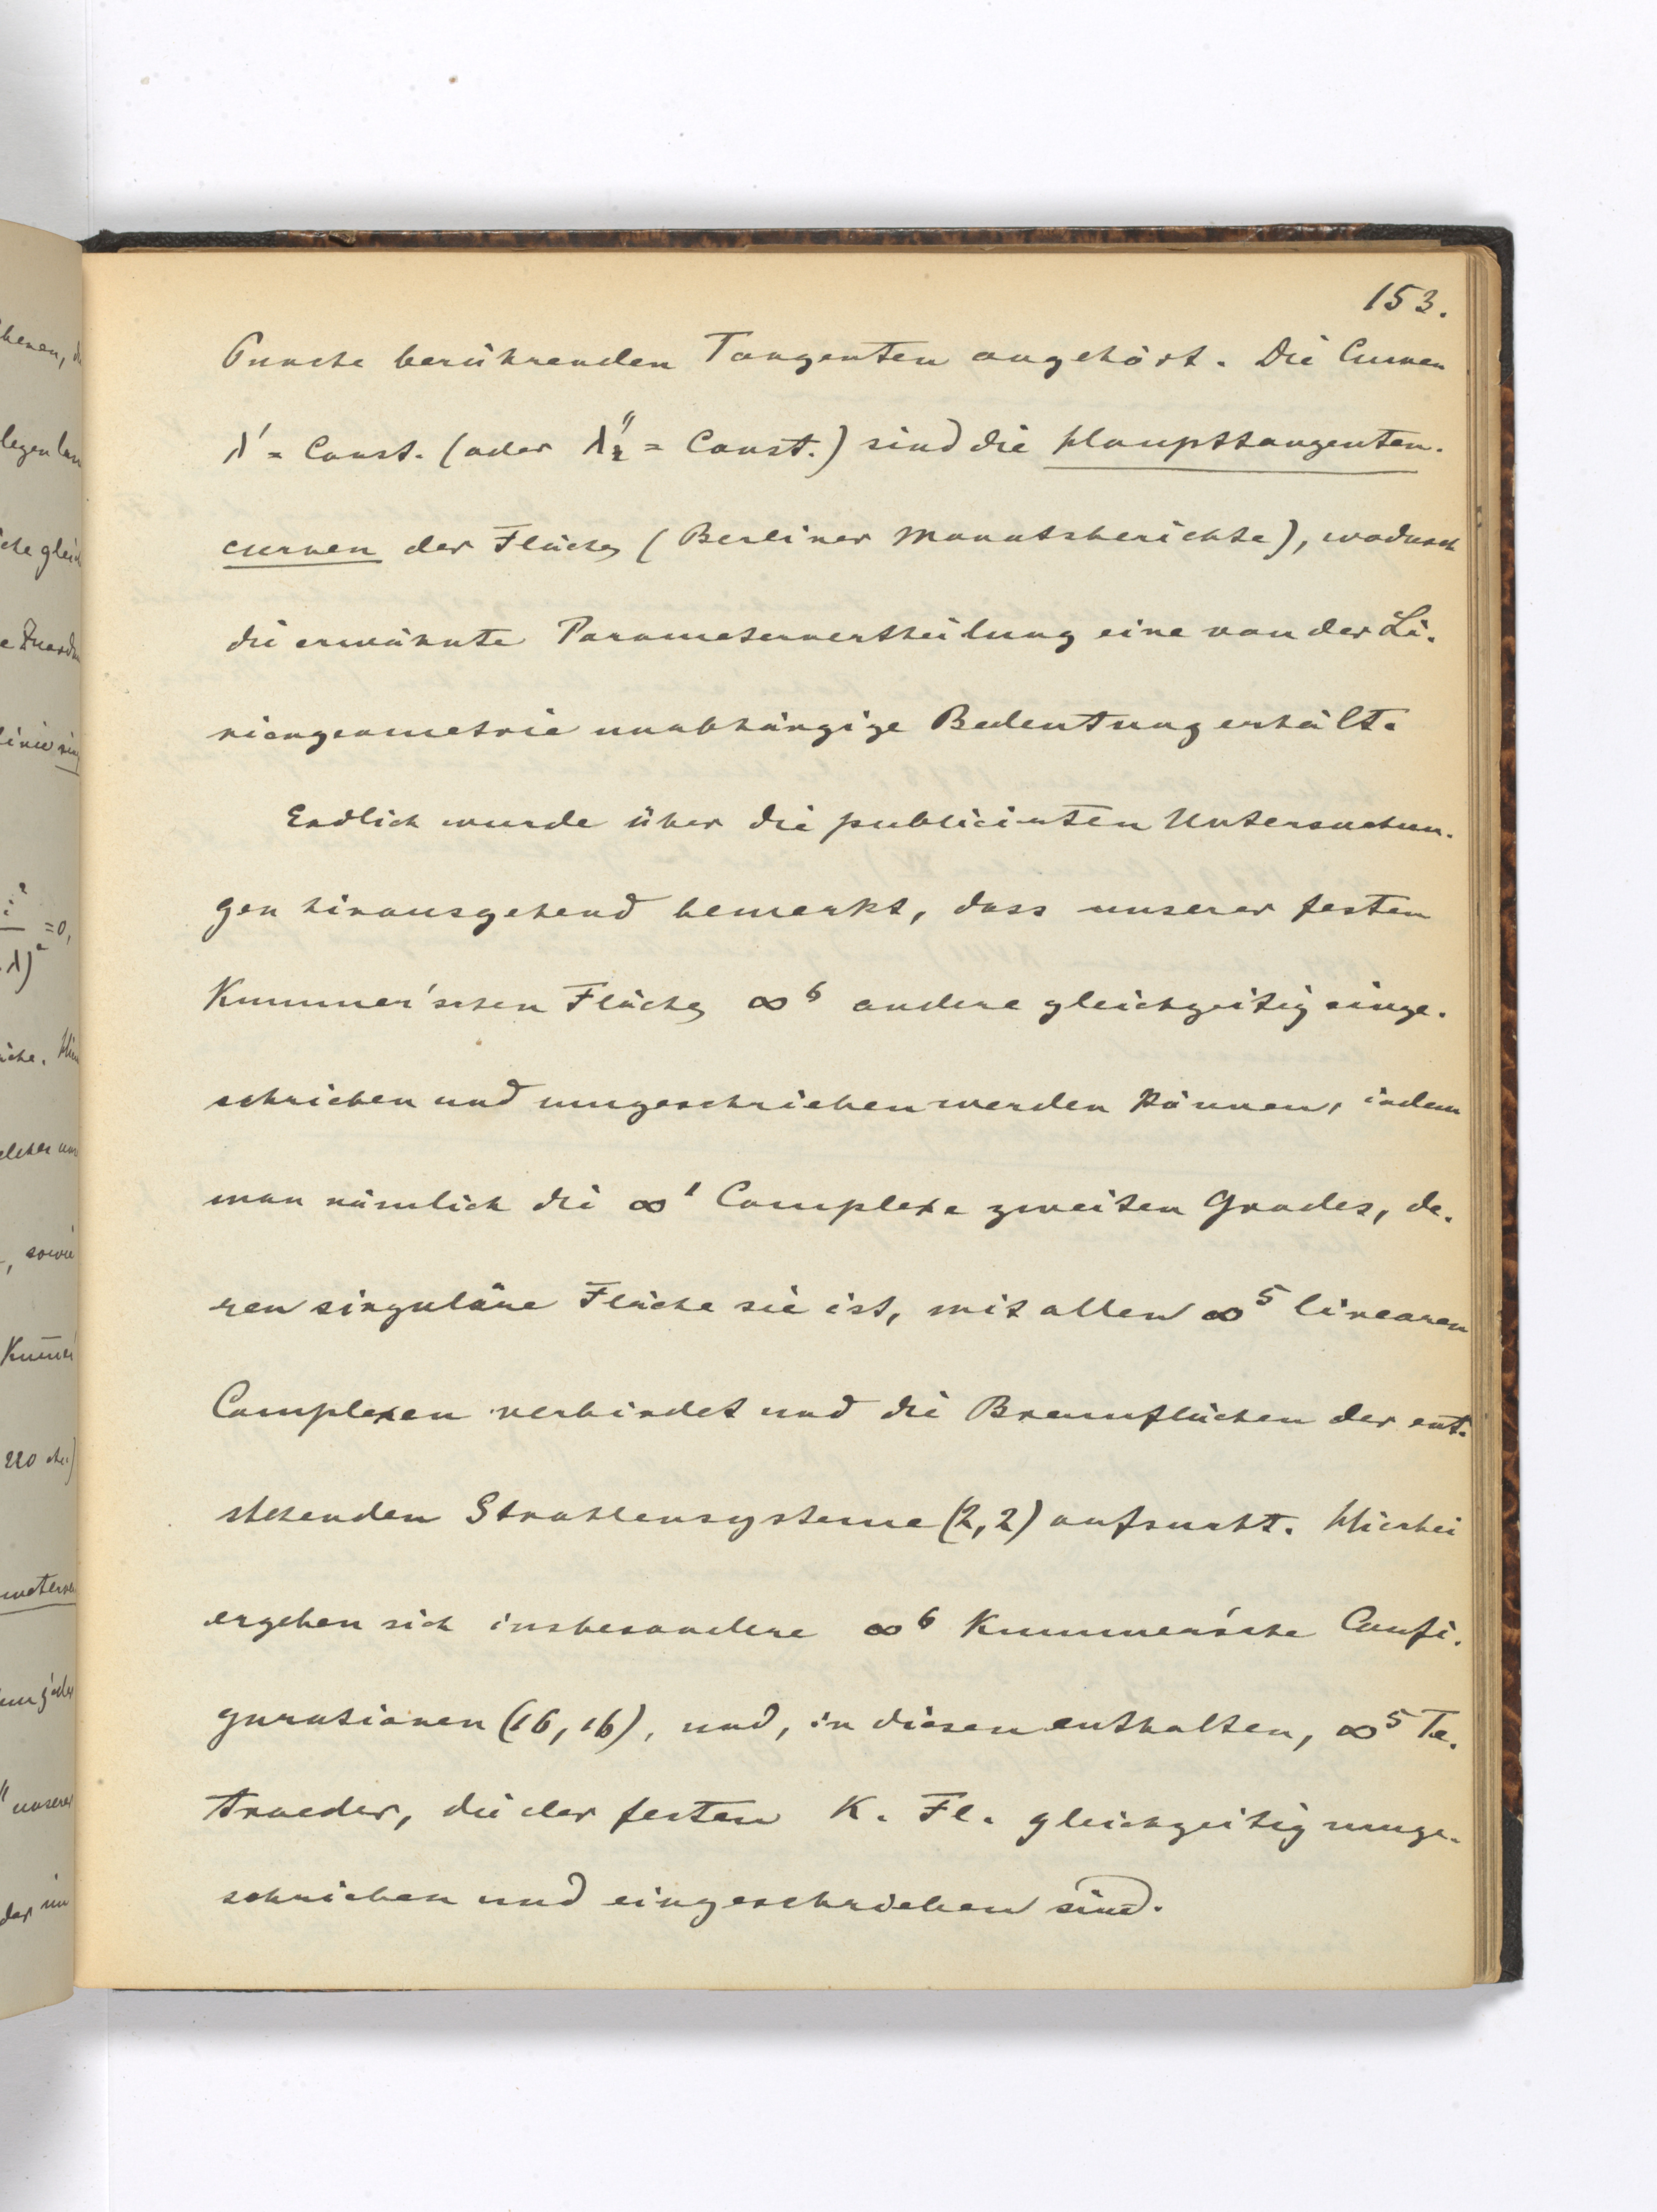 153.
Puncte berührenden Tangenten angehört. Die Curven
λ' = Const. (oder λ'' = Const.) sind die Haupttangenten-
curven der Fläche (Berliner Monatsberichte), wodurch
die erwähnte Parametervertheilung eine von der Li-
niengeometrie unabhängige Bedeutung erhält.
Endlich wurde über die publicirten Untersuchun-
gen hinausgehend bemerkt, dass unserer festen
Kummer'schen Fläche ∞⁶ andere gleichzeitig einge-
schrieben und umgeschrieben werden können, indem
man nämlich die ∞¹ Complexe zweiten Grades, de-
ren singuläre Fläche sie ist, mit allen ∞⁵ linearen
Complexen verbindet und die Brennflächen der ent-
stehenden Strahlensysteme (2,2) aufsucht. Hierbei
ergeben sich insbesondere ∞⁶ Kummer'sche Confi-
gurationen (16, 16), und, in diesen enthalten, ∞⁵ Te-
traeder, die der festen K. Fl. gleichzeitig umge-
schrieben und eingeschrieben sind.